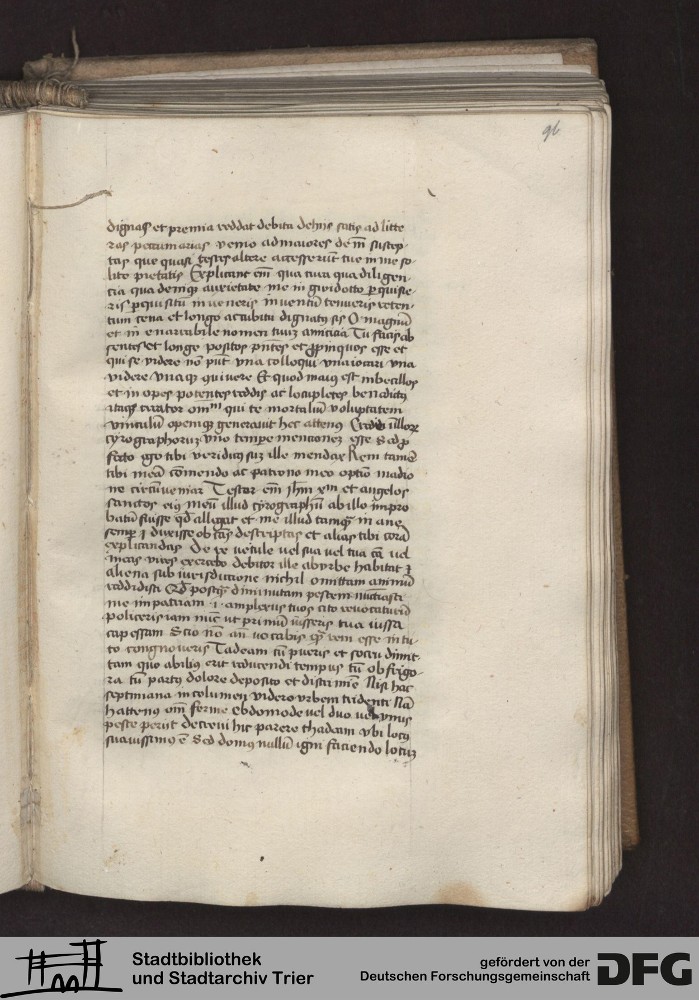 96
dignas et premia reddat debita dehijs satis ad litte
ras peccuniarias venio ad maiores de m̅ suscep
tas que quasi testes altere accesserūt tue in me so
lite pietatis Explicant em̅ qua cura qua diligen
cia qua demqȝ anxietate me in gwidotto perquisie
ris perquisitū inveneris inventū tenueris reten
tum cena et longo accubitu dignatus sis O magnū
et in enarrabile nomen tuum amicicia Tu facis ab
sentes et longe positos pn̅tes et propinquos esse et
qui se videre nō pn̅t vna colloqui vna iocari vna
videre vnaqȝ quivere Et quod maius est inbecillos
et in opes potentes reddis ac locupletes benedictus
itaqȝ creator om̅ qui te mortaliū voluptatem
vinculū opemqȝ generavit hec attenus Credis illorum
cyrographorum vno tempore mencionem esse Sed pro
fecto ego tibi veridicus sum ille mendax Rem tamē
tibi meā cōmendo ac patrono meo optīo maδio
ne circūveniar Testor em̅ jhm̅ xp̅m et angelos
sanctos eius meū illud cyrographū ab illo impro
batū fuisse qd̅ alligat et me illud tamqȝ in ane
semper dixisse ob cās descriptas et alias tibi corā
explicandas De re vetule vel sua vel tua cā vel
meas vires exercebo debitor ille ab vrbe habitat
aliena sub iurisdictione nichil omittam animū
reddidisti Qd̅ postqȝ diminutam pestem nuncciasti
me in patriam amplexus tuos cito revocaturū
policeris iam nunc ut primū iusseris tua iussa
capessam Scio nō an vocabis rem esse in tu
to congnoveris Tadeam cū pueris et socru dimit
tam quo abilius erit reducendi tempus tū ob frigo
ra tū partus dolore deposito et discrimīe Nisi hac
septimana incolumen videro vrbem tridenti Nā
hattenus om̅ ferme ebdomode vel duo vel vnus
peste perijt decrevi hic parere thadeam vbi locus
suavissimus ē Sed domus nullū igni faciendo locum
Stadtbibliothek
und Stadtarchiv Trier
gefördert von der
Deutschen Forschungsgemeinschaft
DFG